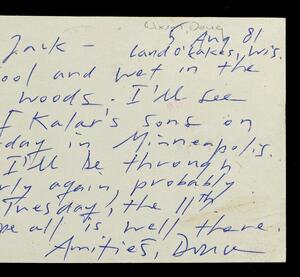 Nixon, Doug
5 Aug 81
Jack — Land o' Lakes, Wis.
ool and wet in the
woods. I'll see
f Kalar's sons on
day in Minneapolis.
I'll be through
rly again, probably
Tuesday, the 11th
pe all is well there.
Amities,